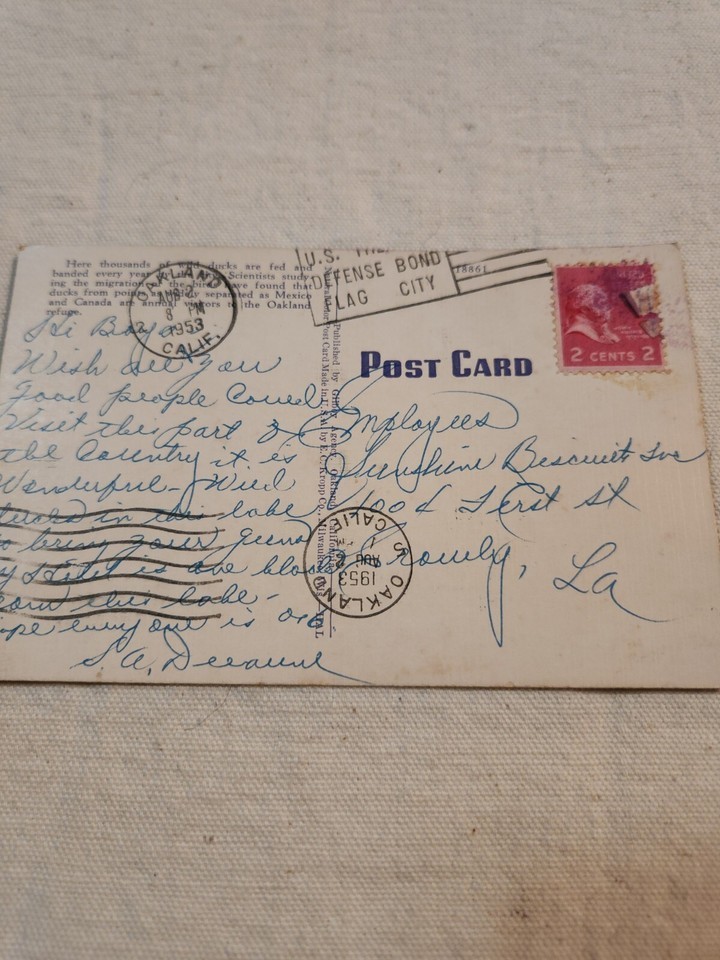 Here thousands of wild ducks are fed and
banded every year Scientists study-
ing the migration of the birds have found that
ducks from points as widely separated as Mexico
and Canada are annual visitors to the Oakland
refuge.
OAKLAND
AUG
8 PM
1953
CALIF.
U.S.
DEFENSE BOND
FLAG CITY
18861
2 CENTS 2
POST CARD
Published by Agency, Oakland, California
Post Card Made in U.S.A. by E. C. Kropp Co., Milwaukee, Wis.
Hi Boys
Wish all you
Good people could
Visit this part of
the Country it is
Wonderful - Wild
ducks in this lake
bring your guns
my Hotel is one block
from this lake -
hope everyone is
S. A.
Employees
Sunshine Biscuits Inc
First St
Crowly, La
OAKLAND
CALIF
AUG
1953